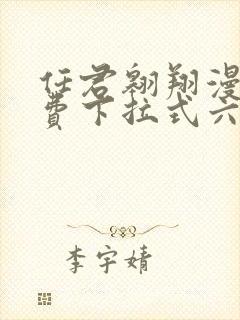 任君翱翔漫
费下拉式六
李宇婧